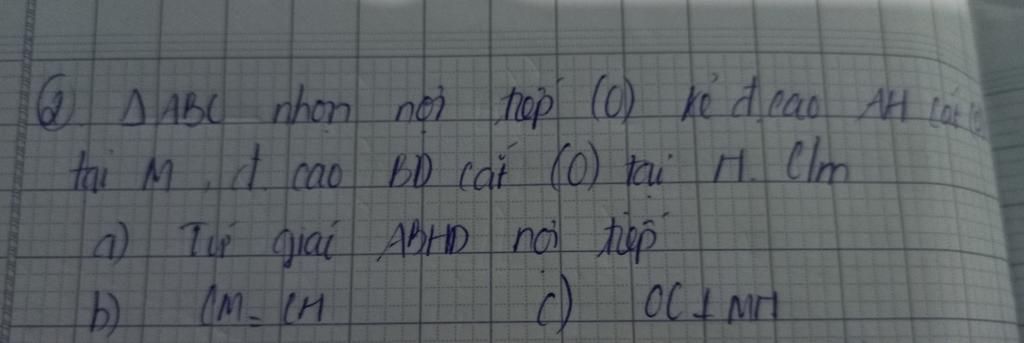 ② Δ ABC nhọn nội tiếp (O) kẻ đ.cao AH cắt (O)
tại M, đ. cao BD cắt (O) tại N. C/m
a) Tứ giác ABHD nội tiếp
b) CM = CN c) OC ⊥ MN